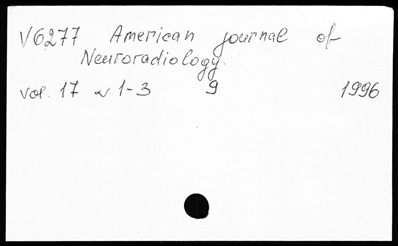 V6277 American journal of
Neuroradiology.
vol. 17 N 1-3 9 1996